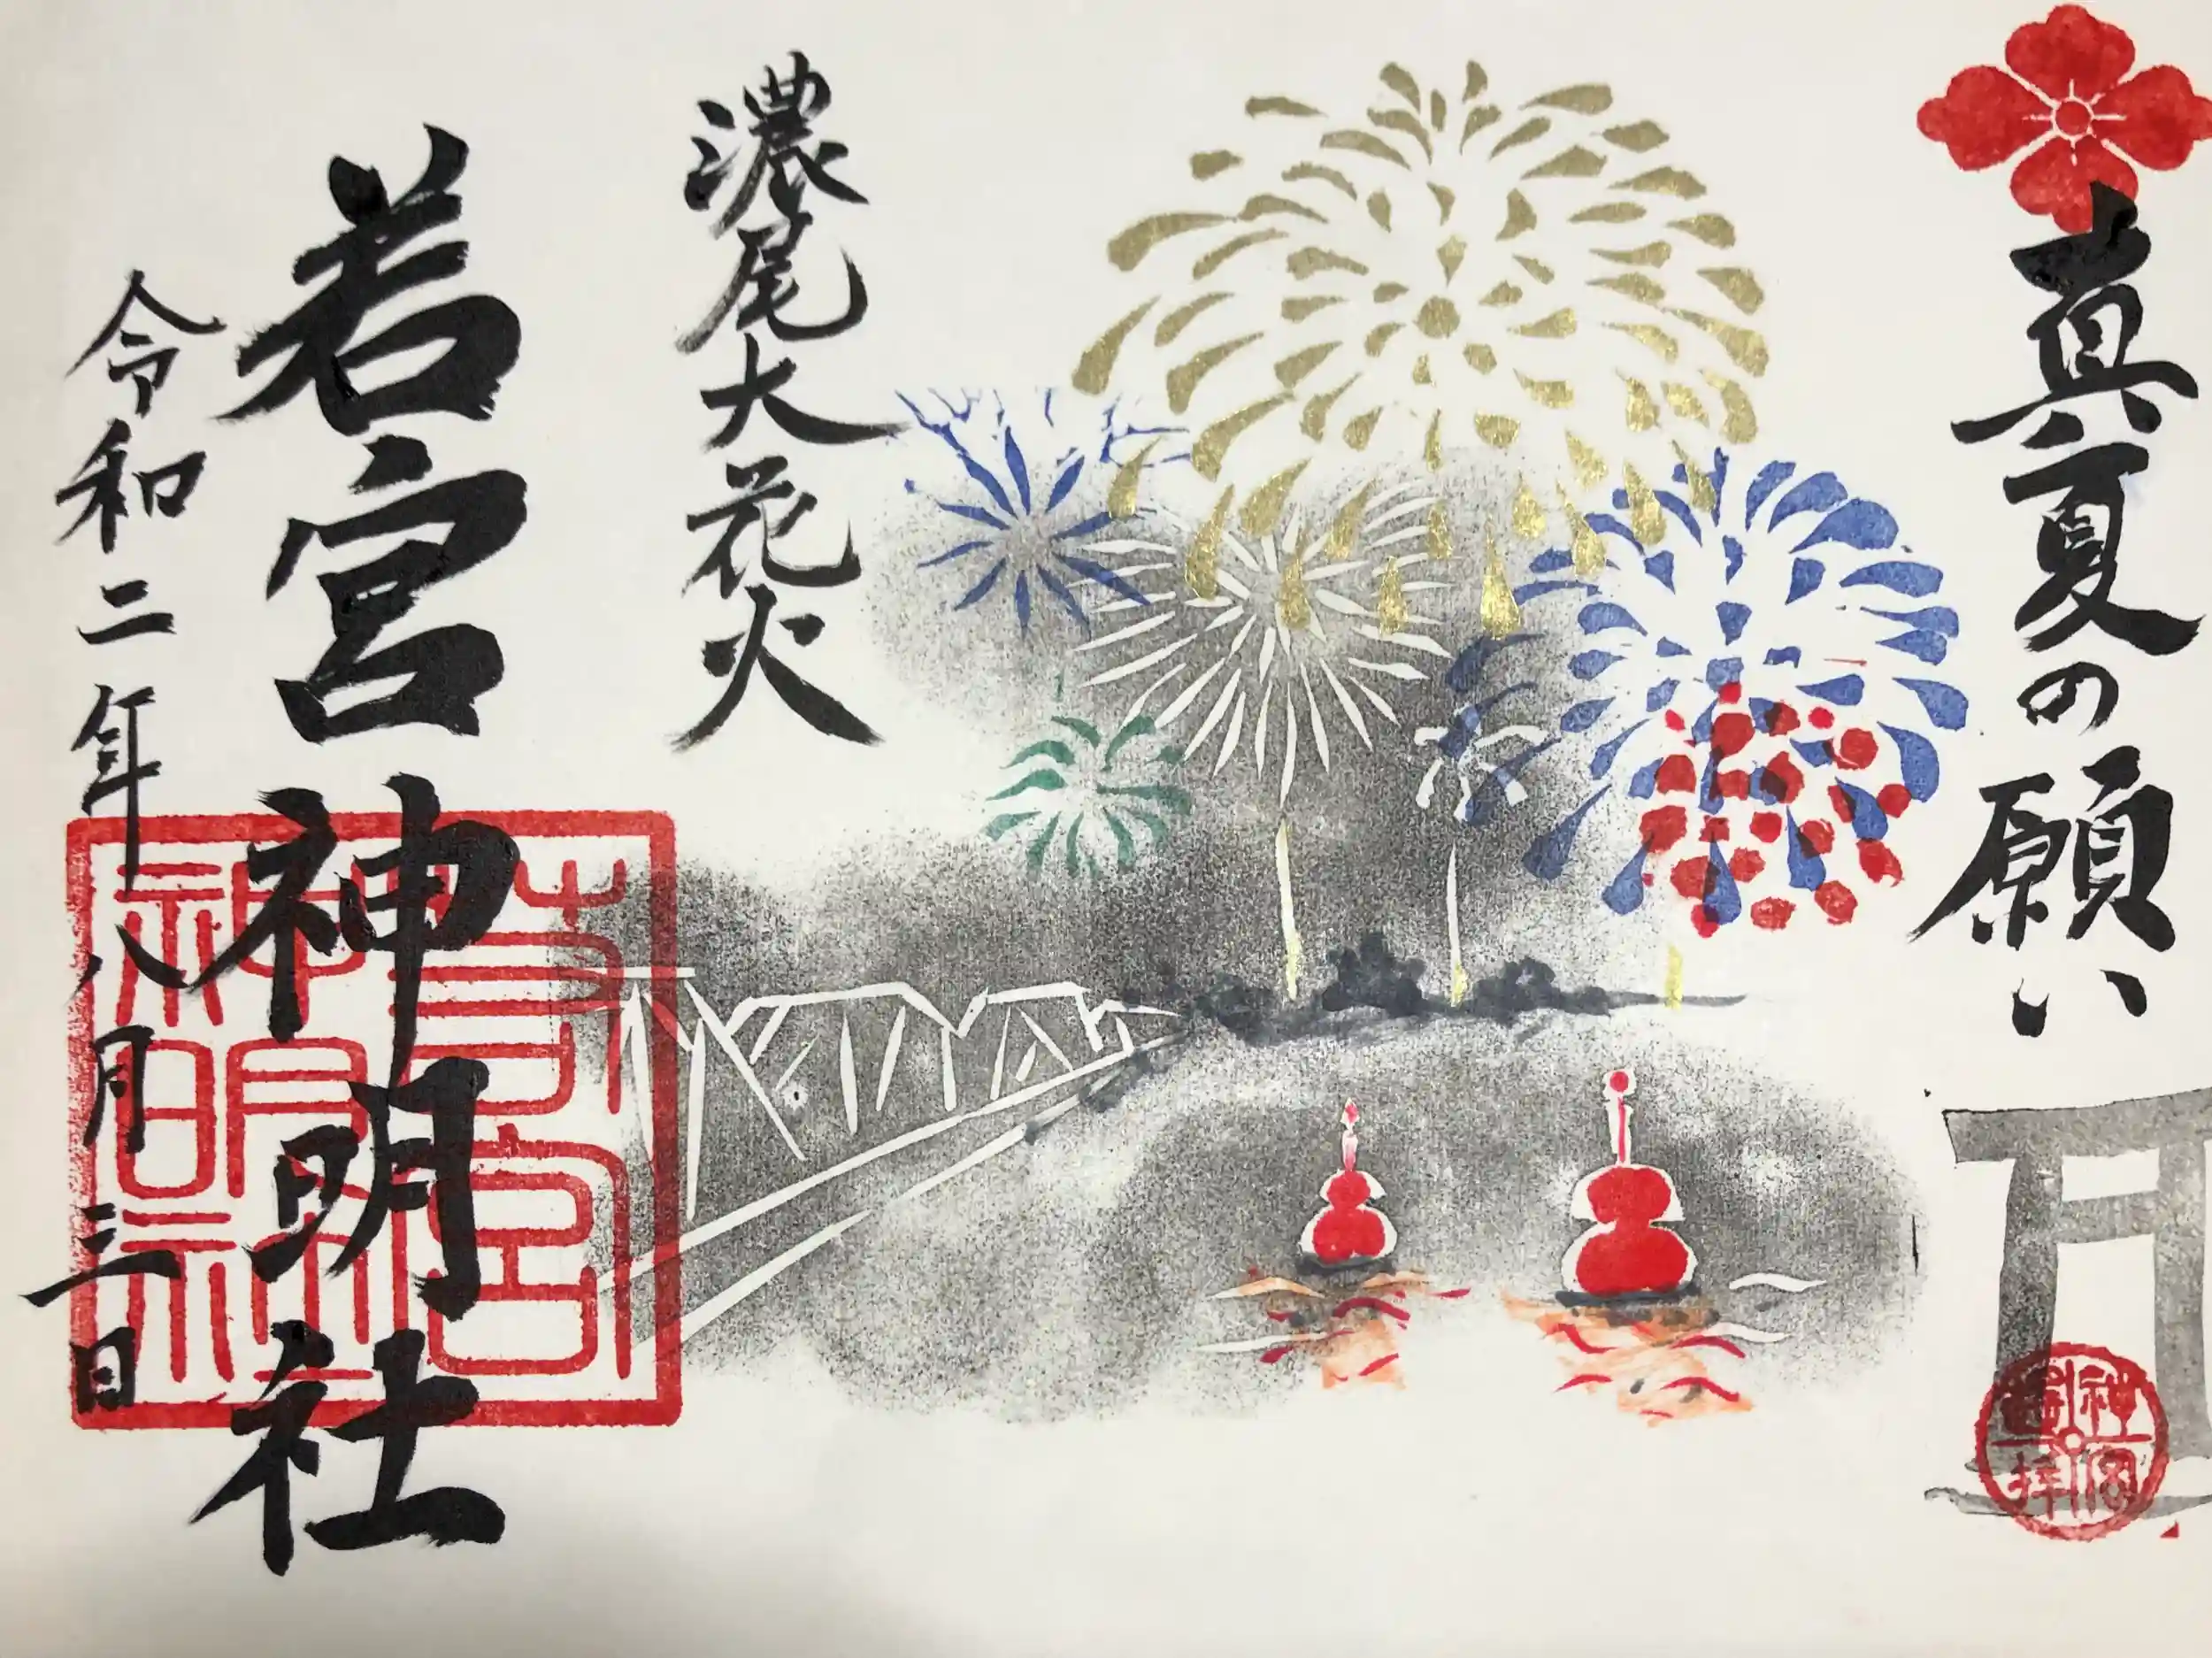 真夏の願い
濃尾大花火
若宮神明社
令和二年八月三日
若宮神明社
神宮遥拝